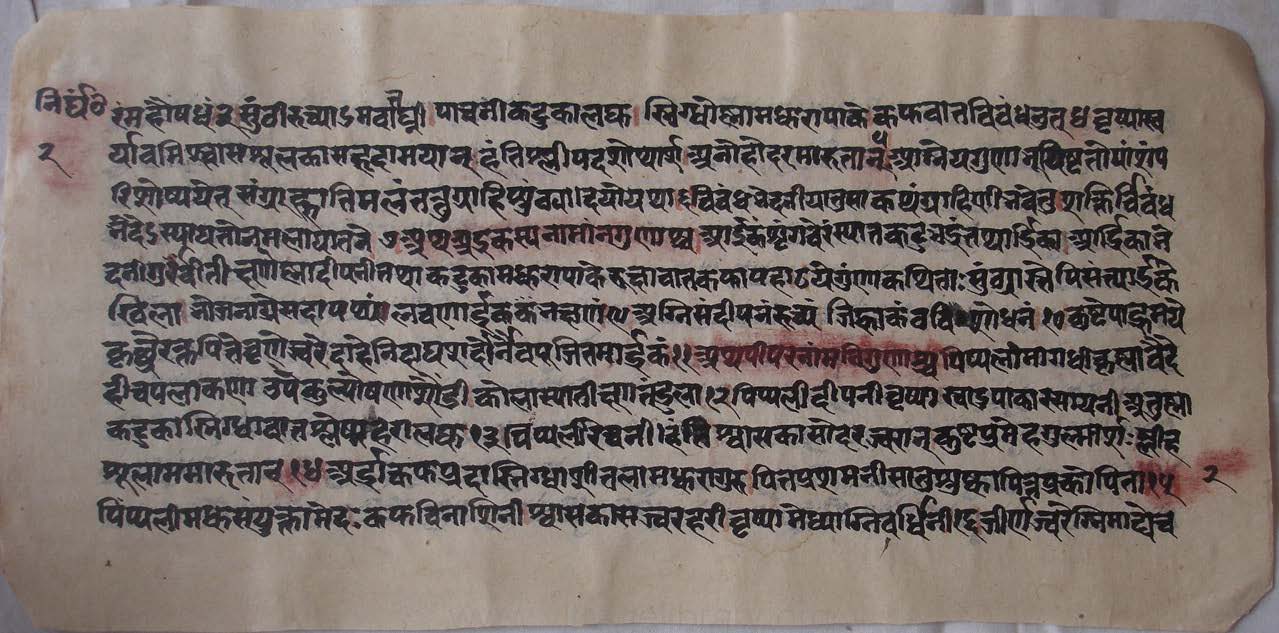 निर्घं०
२
रंमहौषधं३ सुंवीरुच्याऽमवातघ्नी पाचनीकटुकालघु स्निग्धोष्णामधुरापाके कफवातविबंधनुत् ४ वृष्यास्व
र्यावमिश्वासशूलकासहृदामयान् हंतिश्लीपदशोथार्श आनाहोदरमारुतान् ५ आग्नेयगुण
शोषयेत् संग्राह्णातिमलंतत्तुग्राहिशुंठ्यादयोयथा विबंधभेदनीयातुसाकथंग्राहिणीभवेत् शक्तिर्विबंध
भेदेऽस्याद्यतोनमलपातने ७ अथअद्रुकस्यनामानगुणाश्च आर्द्रकंशृंगवेरंस्यात्कटुभद्रंतथार्द्रिका आर्द्रिकाभे
दनीगुर्वीतीक्ष्णोष्णादीपनीतथा कटुकामधुरापाके रूक्षावातकफापहा ८ येगुणाकथिताः सुंठ्यास्तेपिसंत्यार्द्रके
खिला भोजनाग्रेसदापथ्यं लवणार्द्रकभक्षणं ९ अग्निसंदीपनंरुच्यं जिह्वाकंठविशोधनं १० कुष्टेपांड्वामये
कृछ्रेरक्तपित्तेव्रणेज्वरेदाहेनिदाघशरदोर्नैवपूजितमार्द्रकं ११ अथपीपरनांमानिगुणाश्च पिप्पलीमागधीकृष्णावैदे
हीचपलाकणा उपकुल्योषणाशौंडी कोलास्यातीक्ष्णतंडुला १२ पिप्पलीदीपनीवृष्या स्वादुपाकारसायनी अनुष्णा
कटुकास्निग्धावातश्लेष्महरालघु १३ पिप्पलीरेचनी हंति श्वासकासोदरज्वरान् कुष्टप्रमेहगुल्मार्शः प्लीह
शूलाममारुतान् १४ आर्द्राकफप्रदास्निग्धाशीतलामधुरागुरु पित्तप्रशमनीसातुशुष्कापित्तप्रकोपिनी १५
२
पिप्पलीमधुसंयुक्तामेदःकफविनाशिनी श्वासकासज्वरहरी वृष्यामेध्याग्निवर्धिनी १६ जीर्णज्वरेग्निमांद्येच